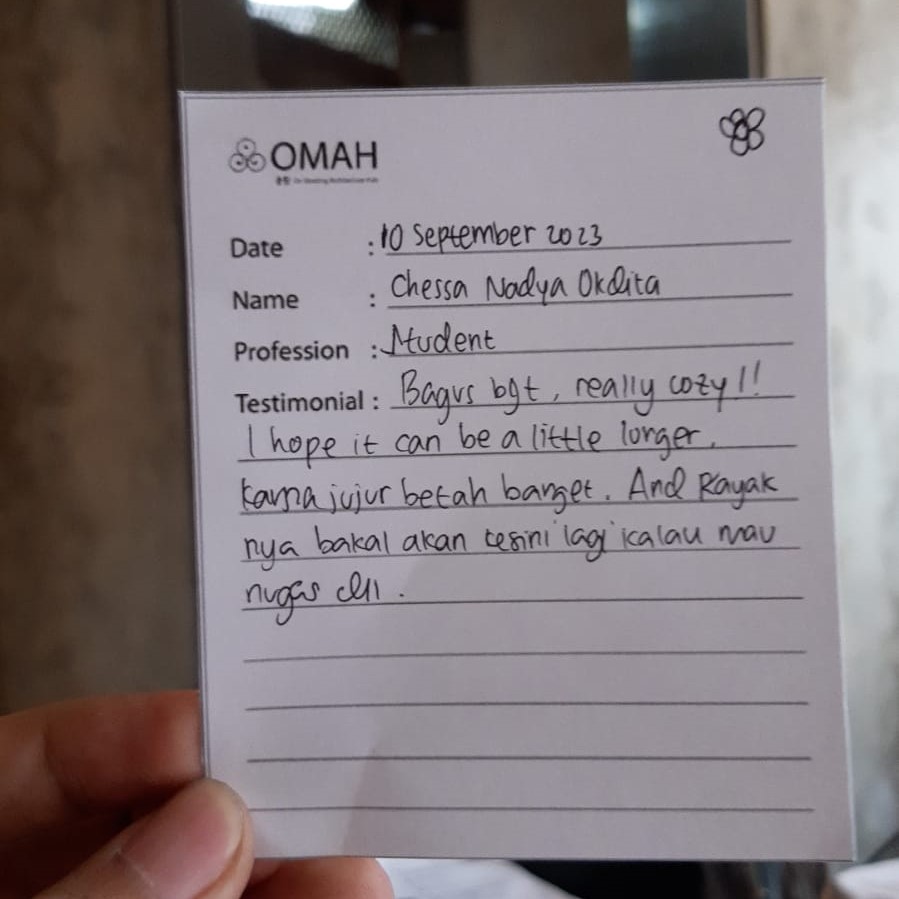 OMAH
Date : 10 September 2023
Name : Chessa Nadya Okdita
Profession : Student
Testimonial : Bagus bgt, really cozy!!
I hope it can be a little longer,
karna jujur betah banget. And Kayak
nya bakal akan kesini lagi kalau mau
nugas dll.